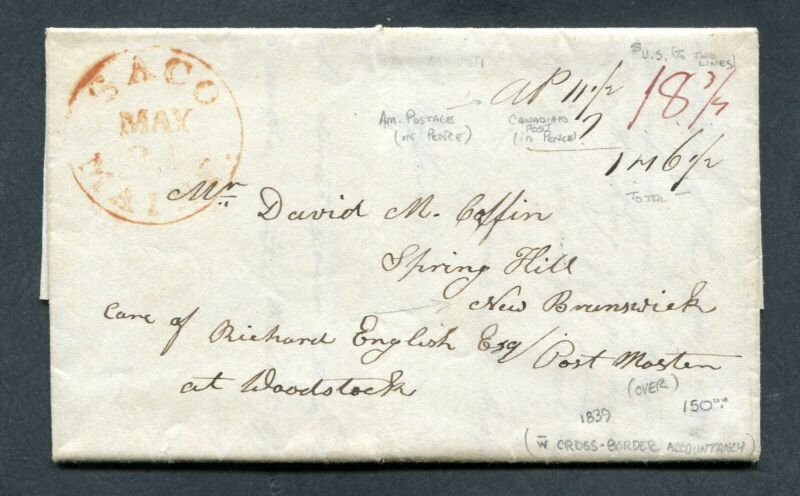 SACO
MAY
MAINE
$ U.S. (TO THE LINES)
18 3/4
AP 11 1/2
7
1 6 1/2
AM. POSTAGE
(IN PENCE)
CANADIAN
POST
(IN PENCE)
TOTAL
Mr. David M. Coffin
Spring Hill
New Brunswick
Care of Richard English Esq/ Post Masten
at Woodstock
(OVER)
1839
150.00
(W CROSS-BORDER ACCOUNTANCY)